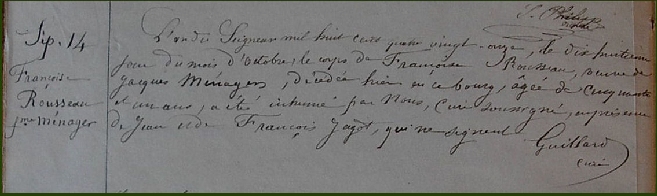 Sép. 14
Françoise
Rousseau
pre Ménager
L'an du Seigneur mil huit cent quatre vingt-onze, le dix huitième
jour du mois d'octobre, le corps de Françoise Rousseau, veuve de
Jacques Ménager, décédée hier en ce bourg, âgée de cinquante
et un ans, a été inhumé par Nous, Curé soussigné, en présence
de Jean et de François Jagot, qui ne signent
Guillard
curé